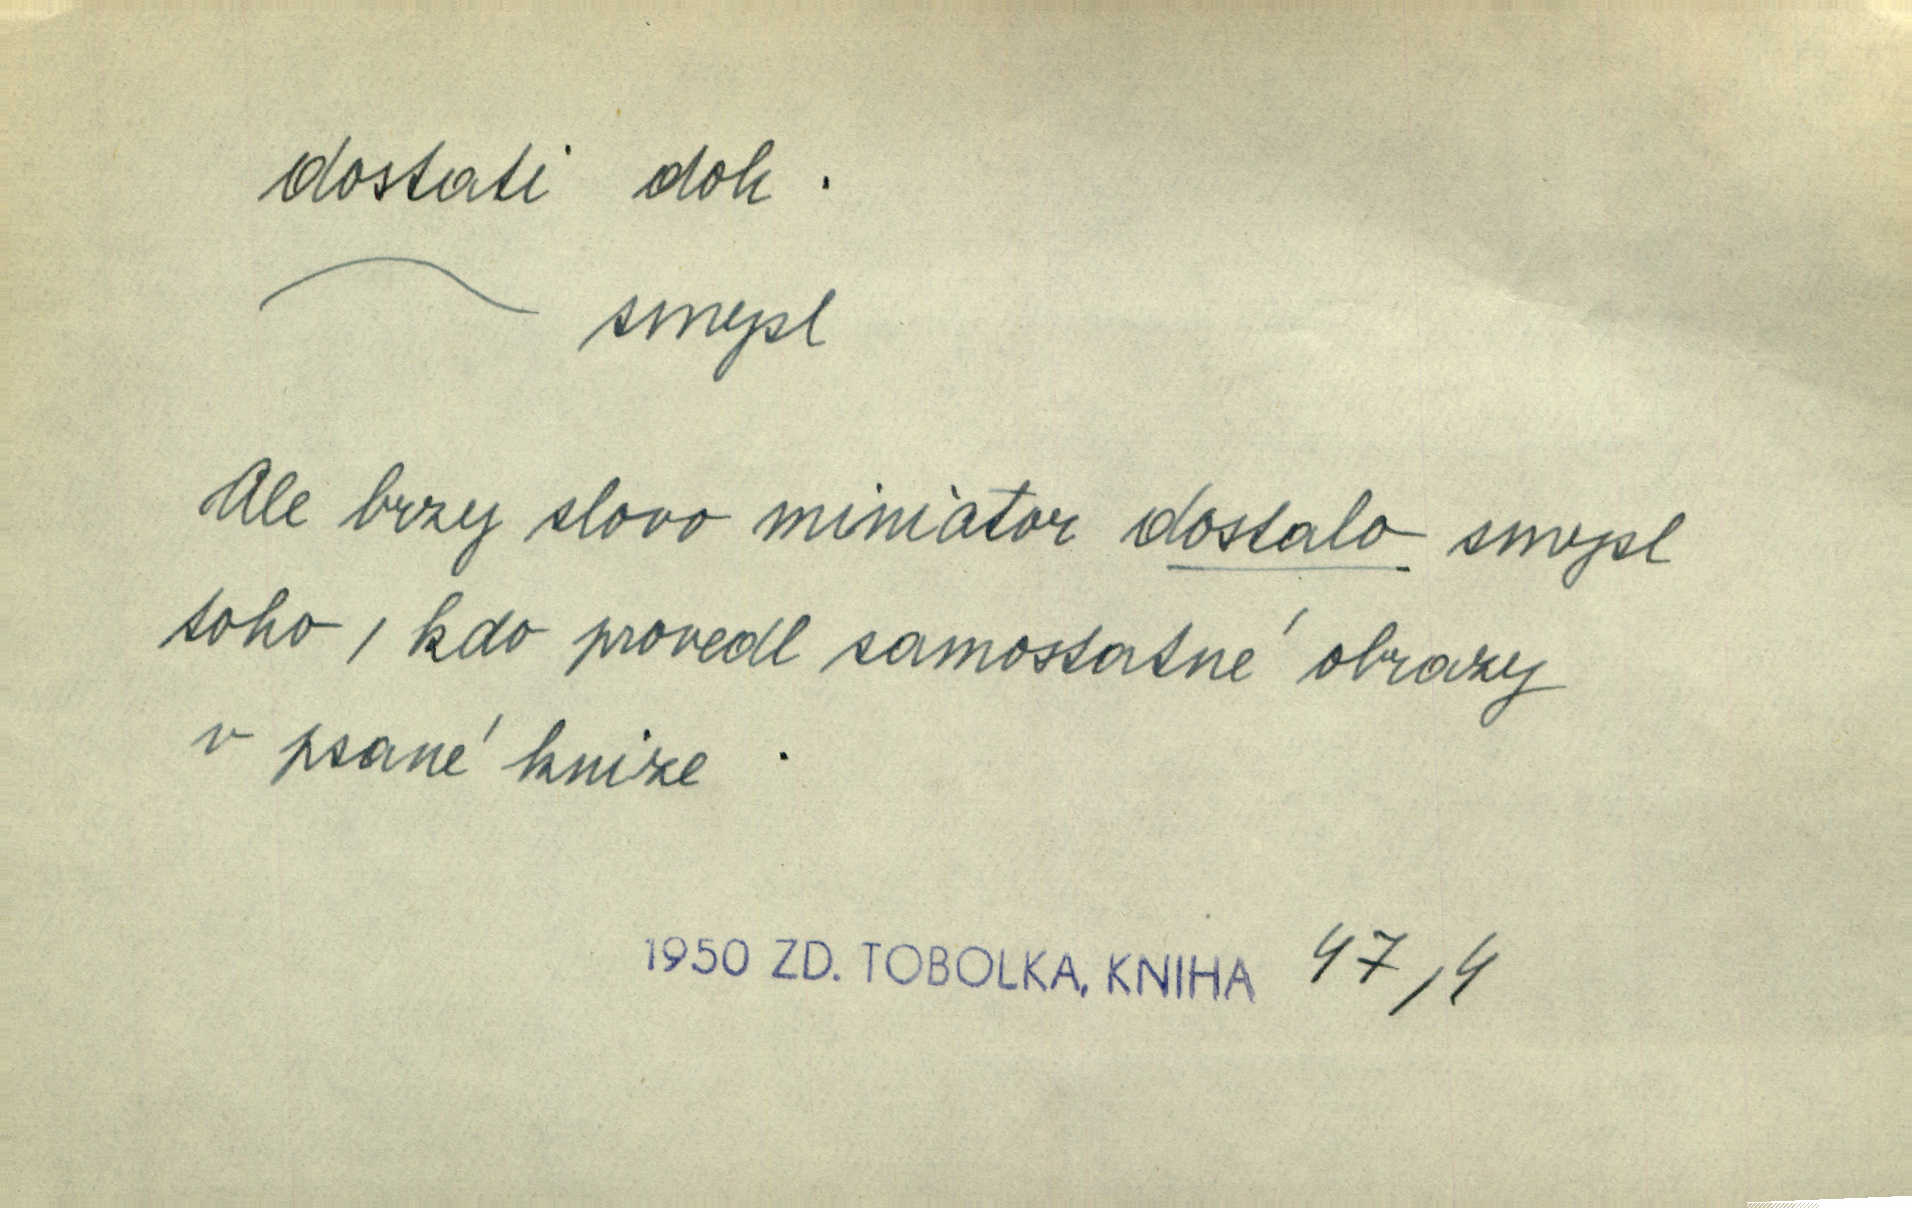 dostati dok.
smysl
Ale brzy slovo miniátor dostalo smysl
toho, kdo provedl samostatné obrazy
v psané knize.
1950 ZD. TOBOLKA, KNIHA 47,4